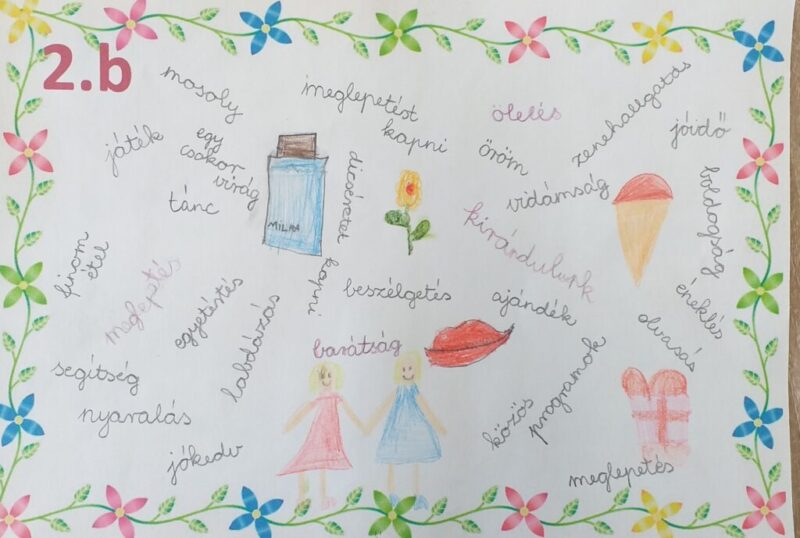 2.b
mosoly
meglepetést
kapni
ölelés
zenehallgatás
jóidő
játék
egy
csokor
virág
tánc
dicséretet kapni
öröm
vidámság
boldogság
kirándulunk
MILKA
finom
étel
meglepetés
egyetértés
labdázás
beszélgetés
ajándék
éneklés
olvasás
barátság
segítség
nyaralás
jókedv
közös
programok
meglepetés